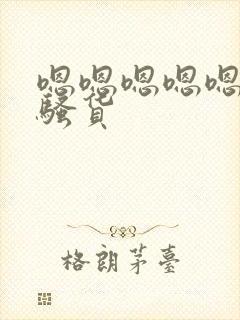 嗯嗯嗯嗯嗯
骚货
格朗茅臺